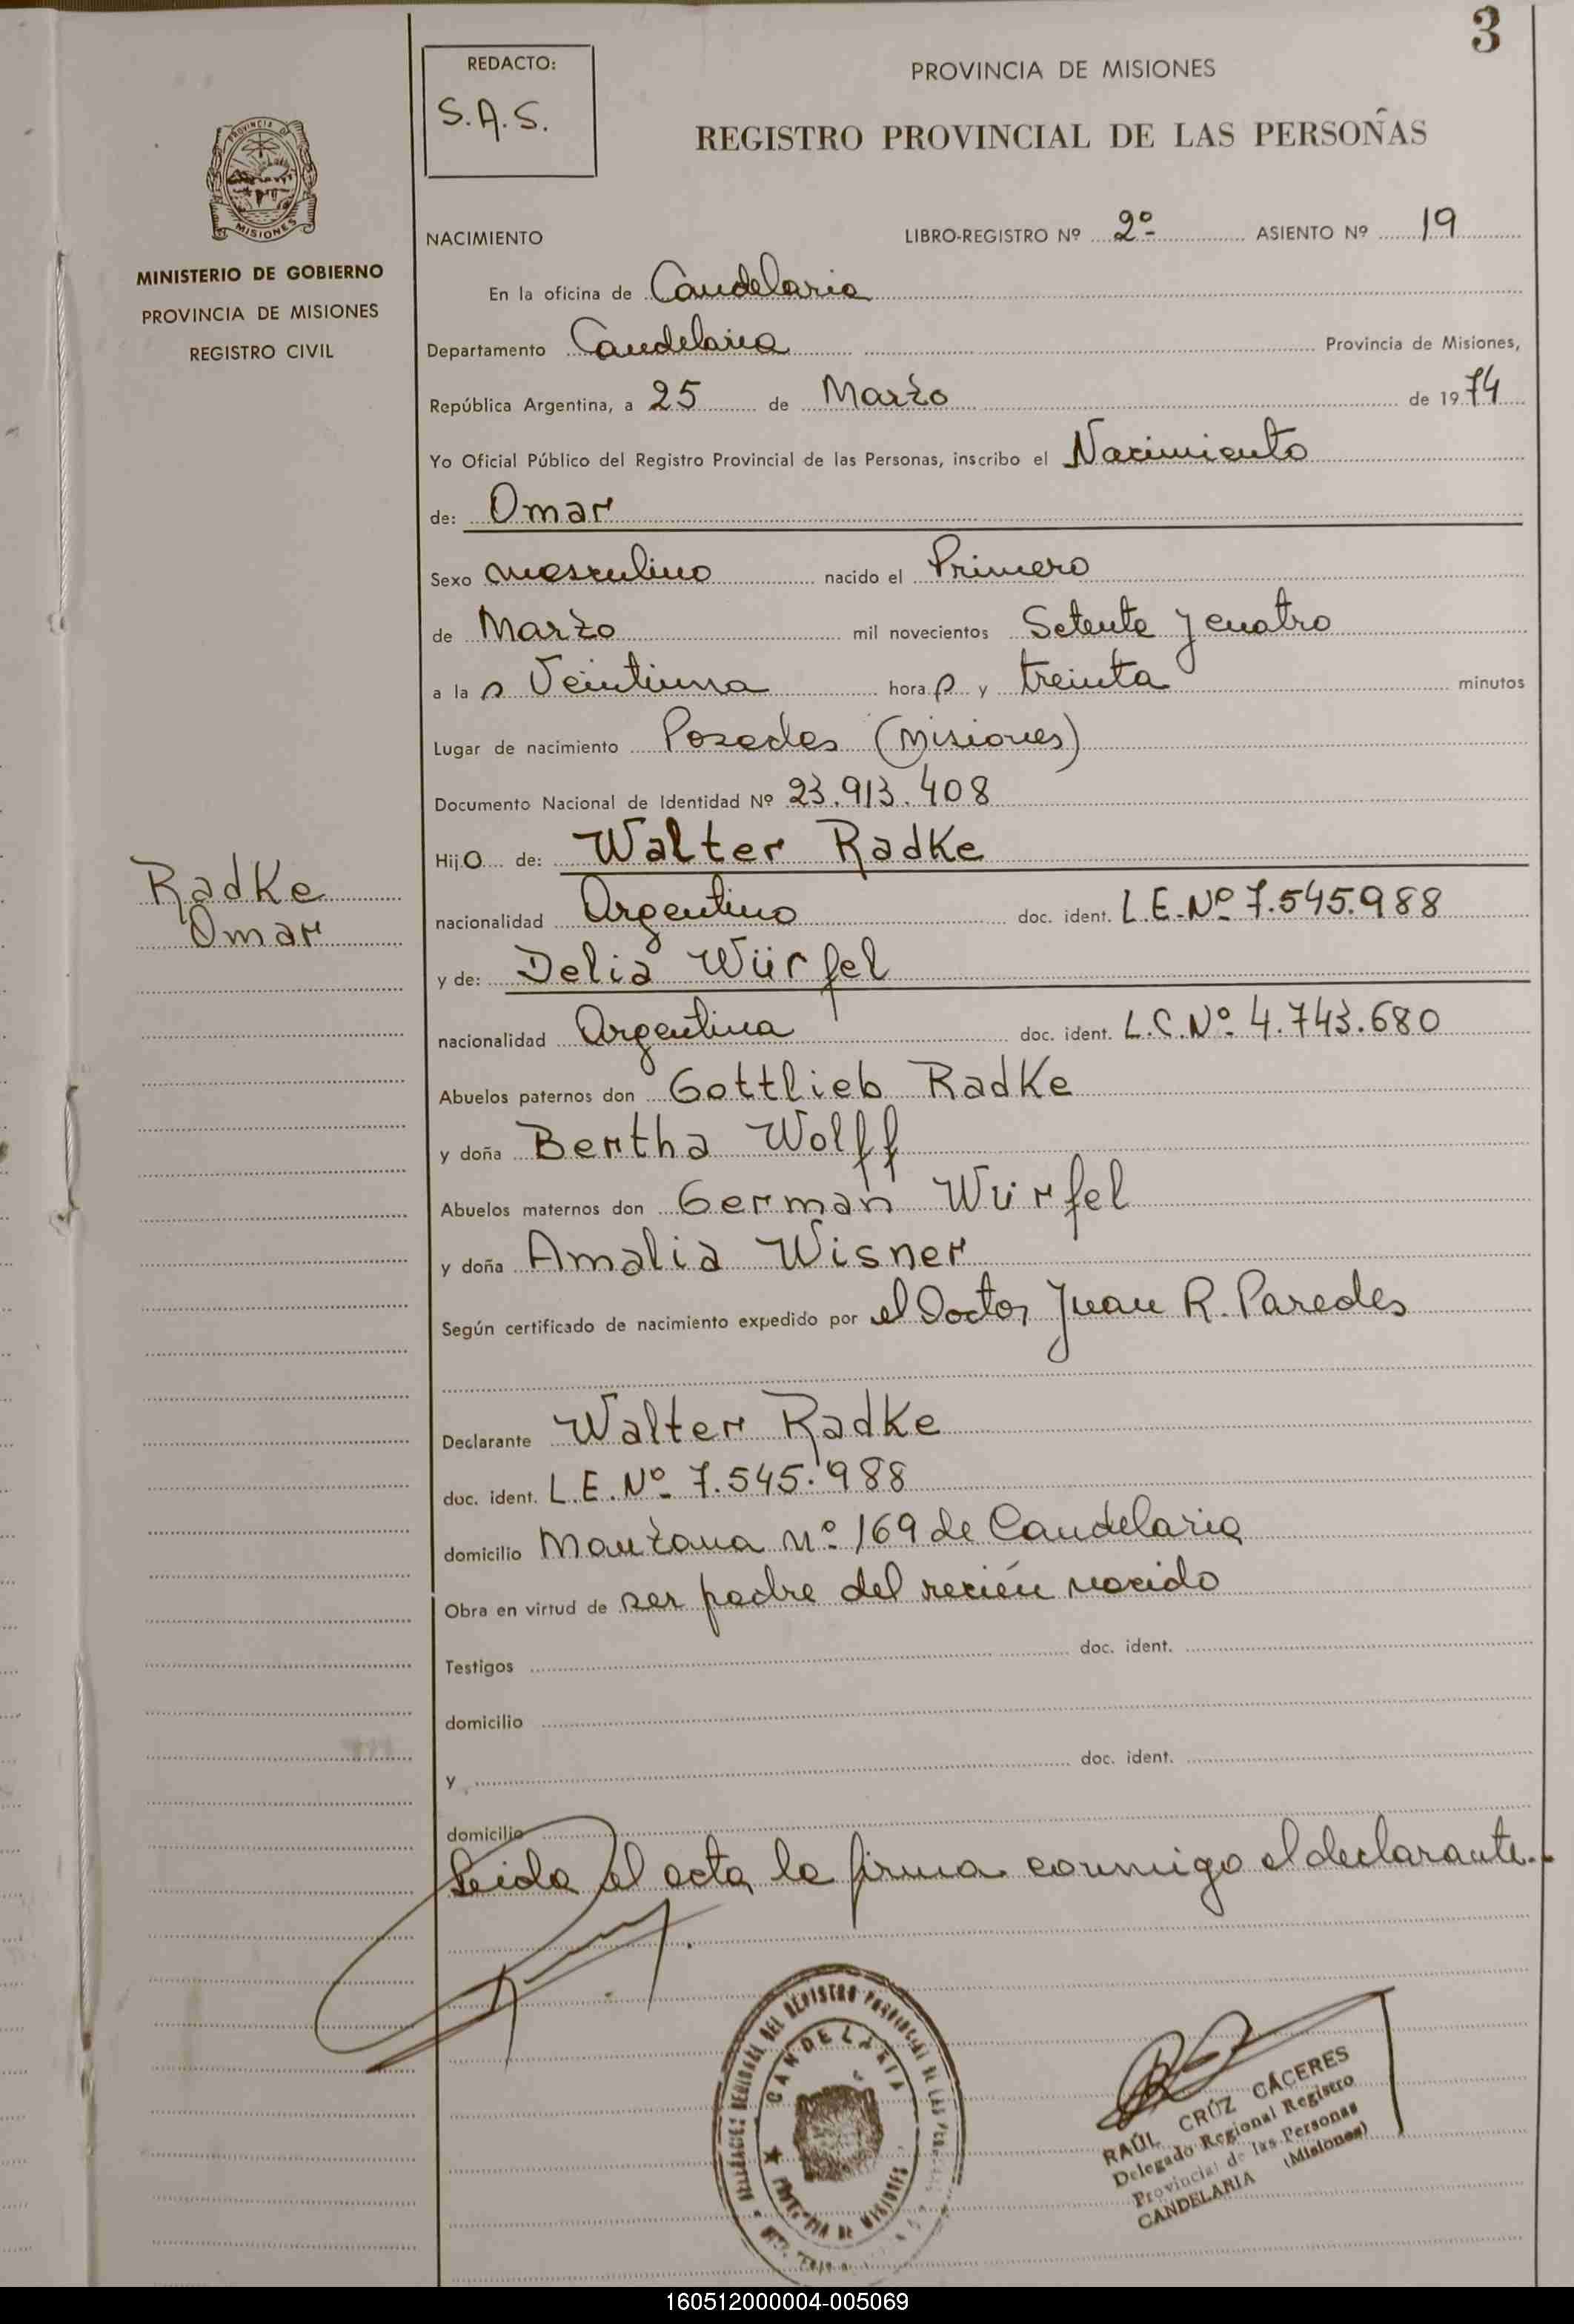 3
REDACTO:
S.A.S.
PROVINCIA DE MISIONES
REGISTRO PROVINCIAL DE LAS PERSONAS
PROVINCIA DE
MISIONES
MINISTERIO DE GOBIERNO
PROVINCIA DE MISIONES
REGISTRO CIVIL
NACIMIENTO LIBRO-REGISTRO Nº 2º ASIENTO Nº 19
En la oficina de Candelaria
Departamento Candelaria Provincia de Misiones,
República Argentina, a 25 de Marzo de 1974
Yo Oficial Público del Registro Provincial de las Personas, inscribo el Nacimiento
de: Omar
Sexo masculino nacido el Primero
de Marzo mil novecientos Setenta y cuatro
a la s Veintiuna hora s y treinta minutos
Lugar de nacimiento Posadas (Misiones)
Documento Nacional de Identidad Nº 23.913.408
Hijo de: Walter Radke
Radke
Omar
nacionalidad Argentino doc. ident. L.E.Nº 7.545.988
y de: Delia Würfel
nacionalidad Argentina doc. ident. L.C.Nº 4.743.680
Abuelos paternos don Gottlieb Radke
y doña Bertha Wolff
Abuelos maternos don German Würfel
y doña Amalia Wisner
Según certificado de nacimiento expedido por el Doctor Juan R. Paredes
Declarante Walter Radke
doc. ident. L.E.Nº 7.545.988
domicilio Manzana nº 169 de Candelaria
Obra en virtud de ser padre del recién nacido
Testigos doc. ident.
domicilio
y doc. ident.
domicilio
Leida el acta, la firma conmigo el declarante.-
CANDELARIA
PROVINCIA DE MISIONES
RAÚL CRÚZ CÁCERES
Delegado Regional Registro
Provincial de las Personas
CANDELARIA (Misiones)
160512000004-005069